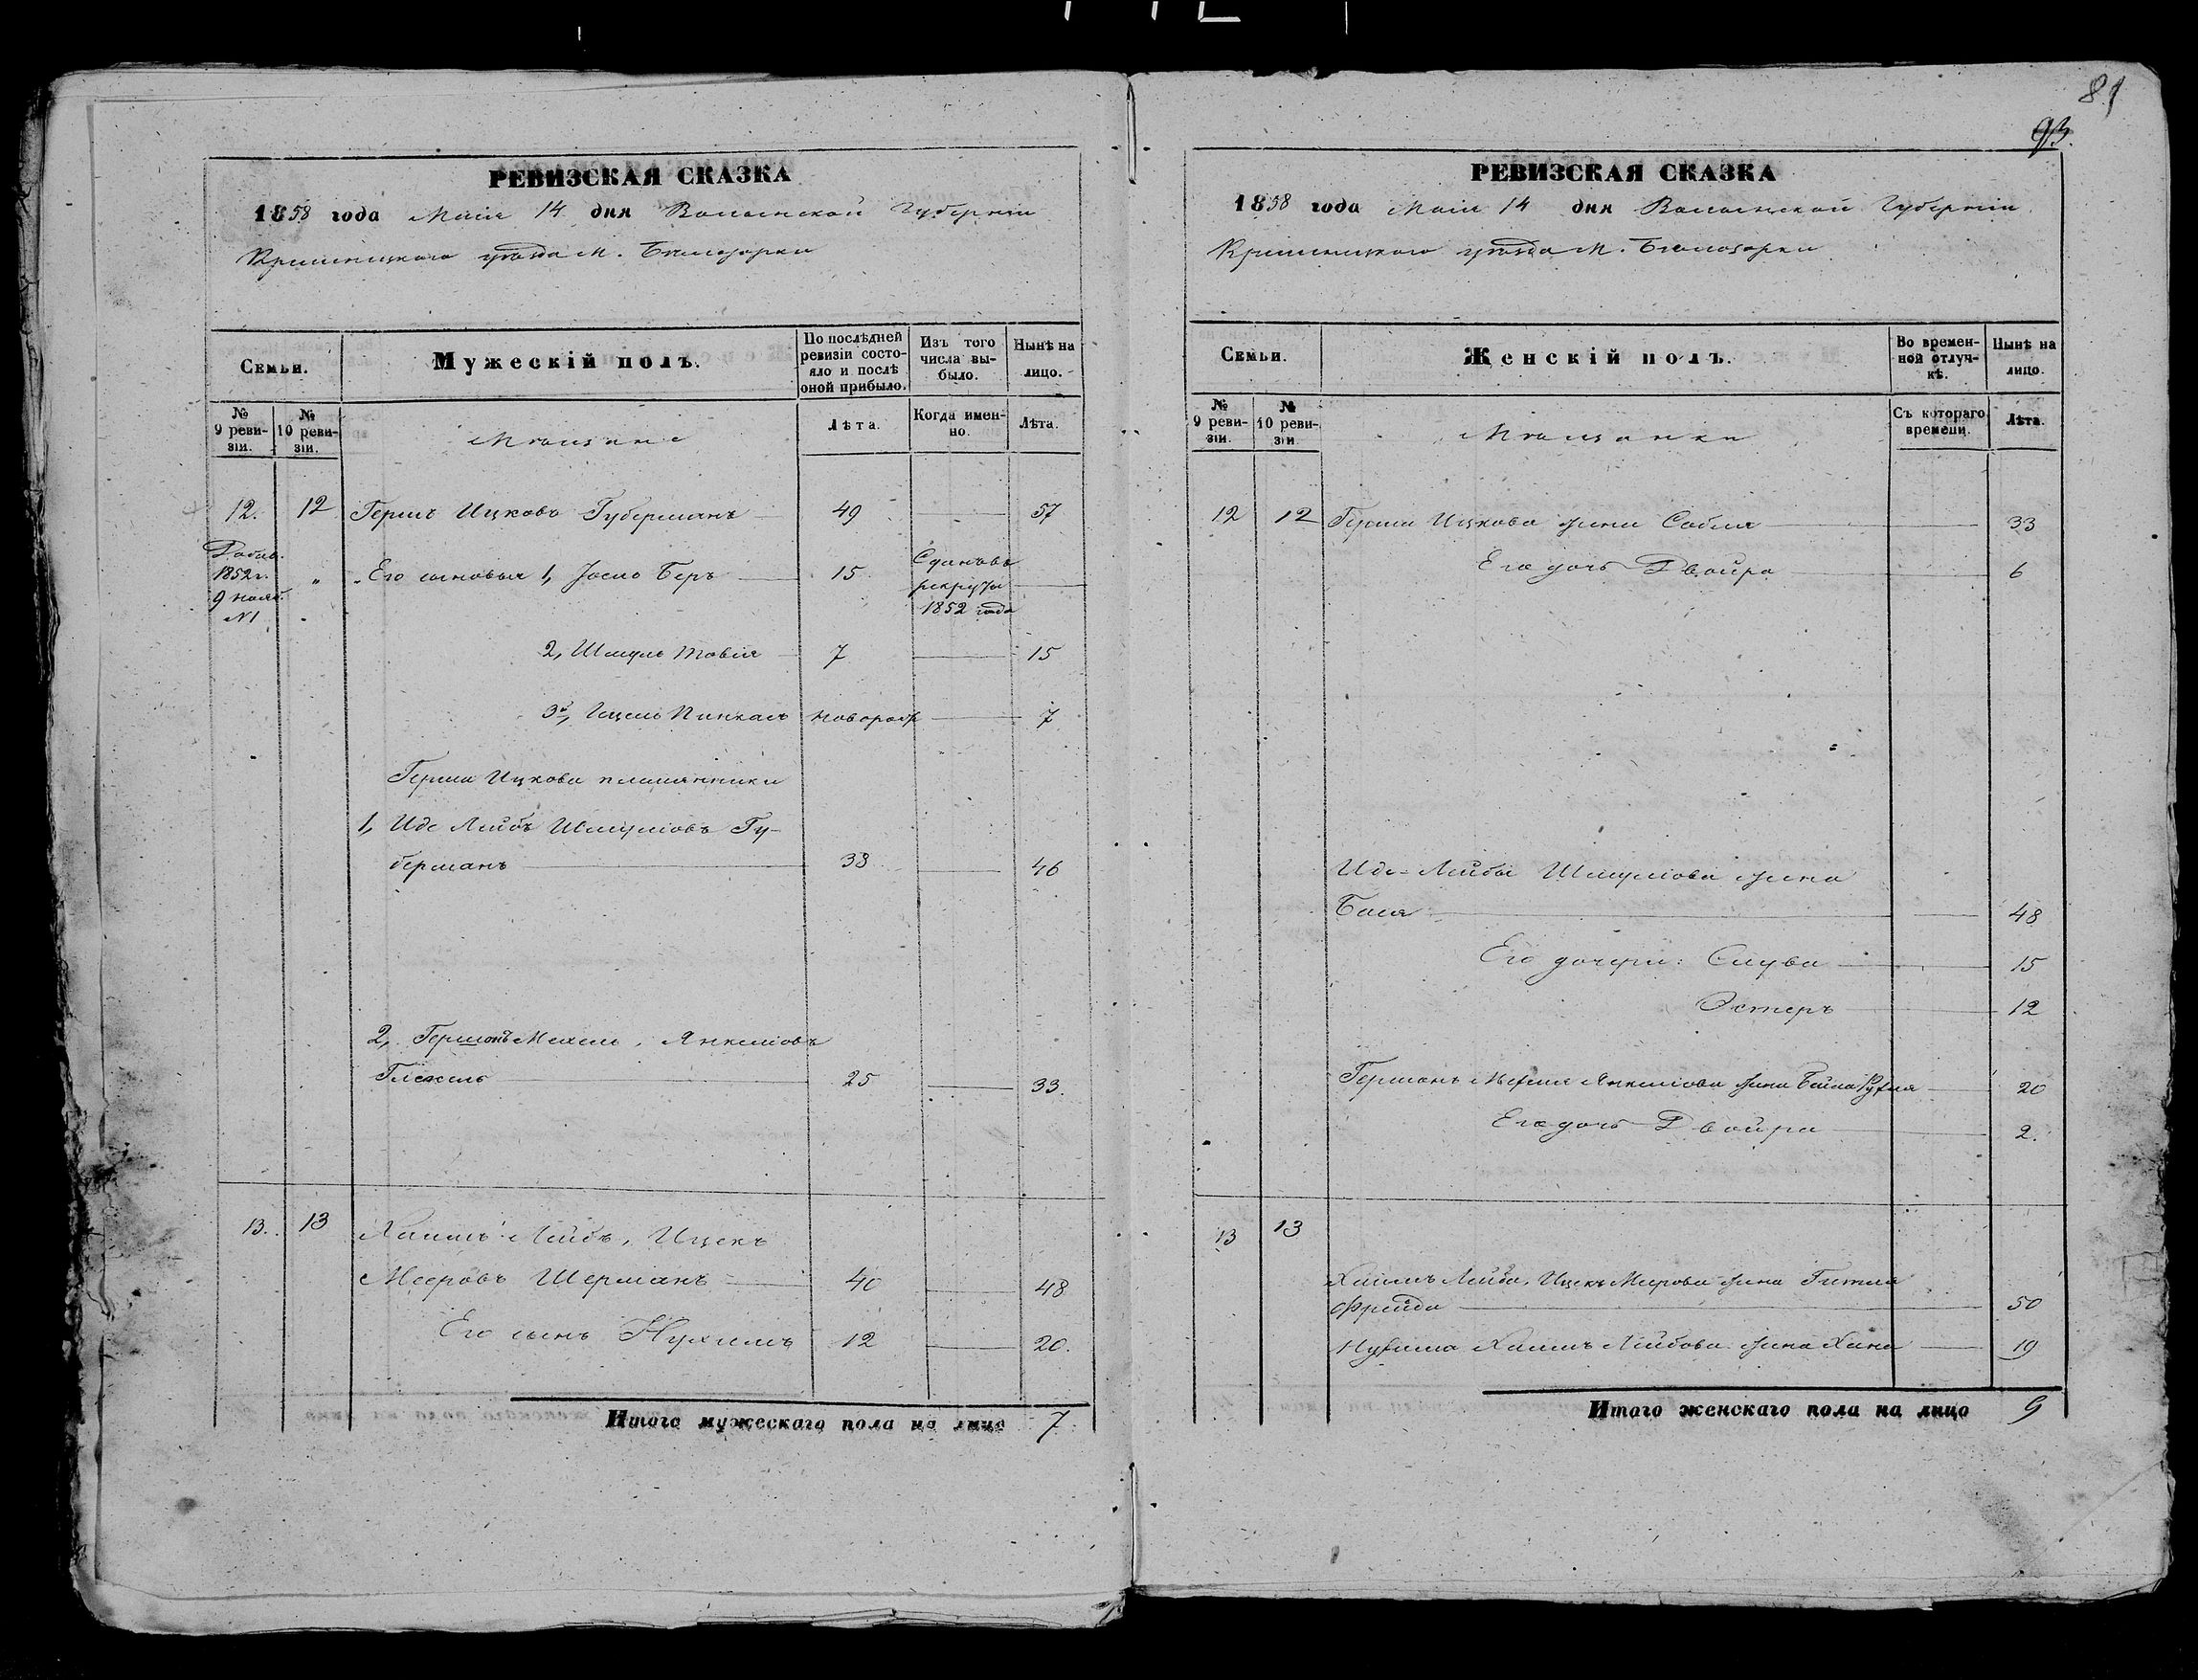 81
93.
РЕВИЗСКАЯ СКАЗКА
1858 года Маія 14 дня Волынской Губерніи
Кременецкаго уѣзда М. Бѣлозорки
Семьи.
Мужескій полъ.
По послѣдней ревизіи состояло и послѣ оной прибыло.
Изъ того числа выбыло.
Нынѣ на лицо.
№ 9 ревизіи.
№ 10 ревизіи.
Мѣщане
Лѣта.
Когда именно.
Лѣта.
12. 12 Гершъ Ицковъ Губерманъ 49 57
Добав. 1852 г. 9 нояб. №1
" Его сыновья 1, Іосль Беръ 15 Сданъ въ рекруты 1852 года
2, Шмуль Товія 7 15
3й, Гецель Пинкасъ новорожд 7
Герша Ицкова племянники
1, Иде Лейбъ Шмулiовъ Гу-
берманъ 38 46
2, Гершонъ Мехель, Янкелiовъ
25 33.
13. 13 Хаимъ Лейбъ, Ицекъ
Мееровъ Шерманъ 40 48
Его сынъ Нухимъ 12 20.
Итого мужескаго пола на лицо 7
РЕВИЗСКАЯ СКАЗКА
1858 года Маія 14 дня Волынской Губерніи
Кременецкаго уѣзда М. Бѣлозорки
Семьи.
Женскій полъ.
Во временной отлучкѣ.
Нынѣ на лицо.
№ 9 ревизіи.
№ 10 ревизіи.
Мѣщанки
Съ котораго времени.
Лѣта.
12 12 Герша Ицкова жена Собля 33
Его дочь Двойра 6
Иде-Лейбы Шмулiова жена
Бася 48
Его дочери: Слува 15
Эстеръ 12
Гершонъ Мехеля Янкелiова жена Бейла Рухля 20
Его дочь Двойра 2.
13 13
Хаимъ Лейба, Ицекъ Меерова жена Гитля
Фрейда 50
Нухима Хаимъ Лейбова жена Хана 19
Итого женскаго пола на лицо 9